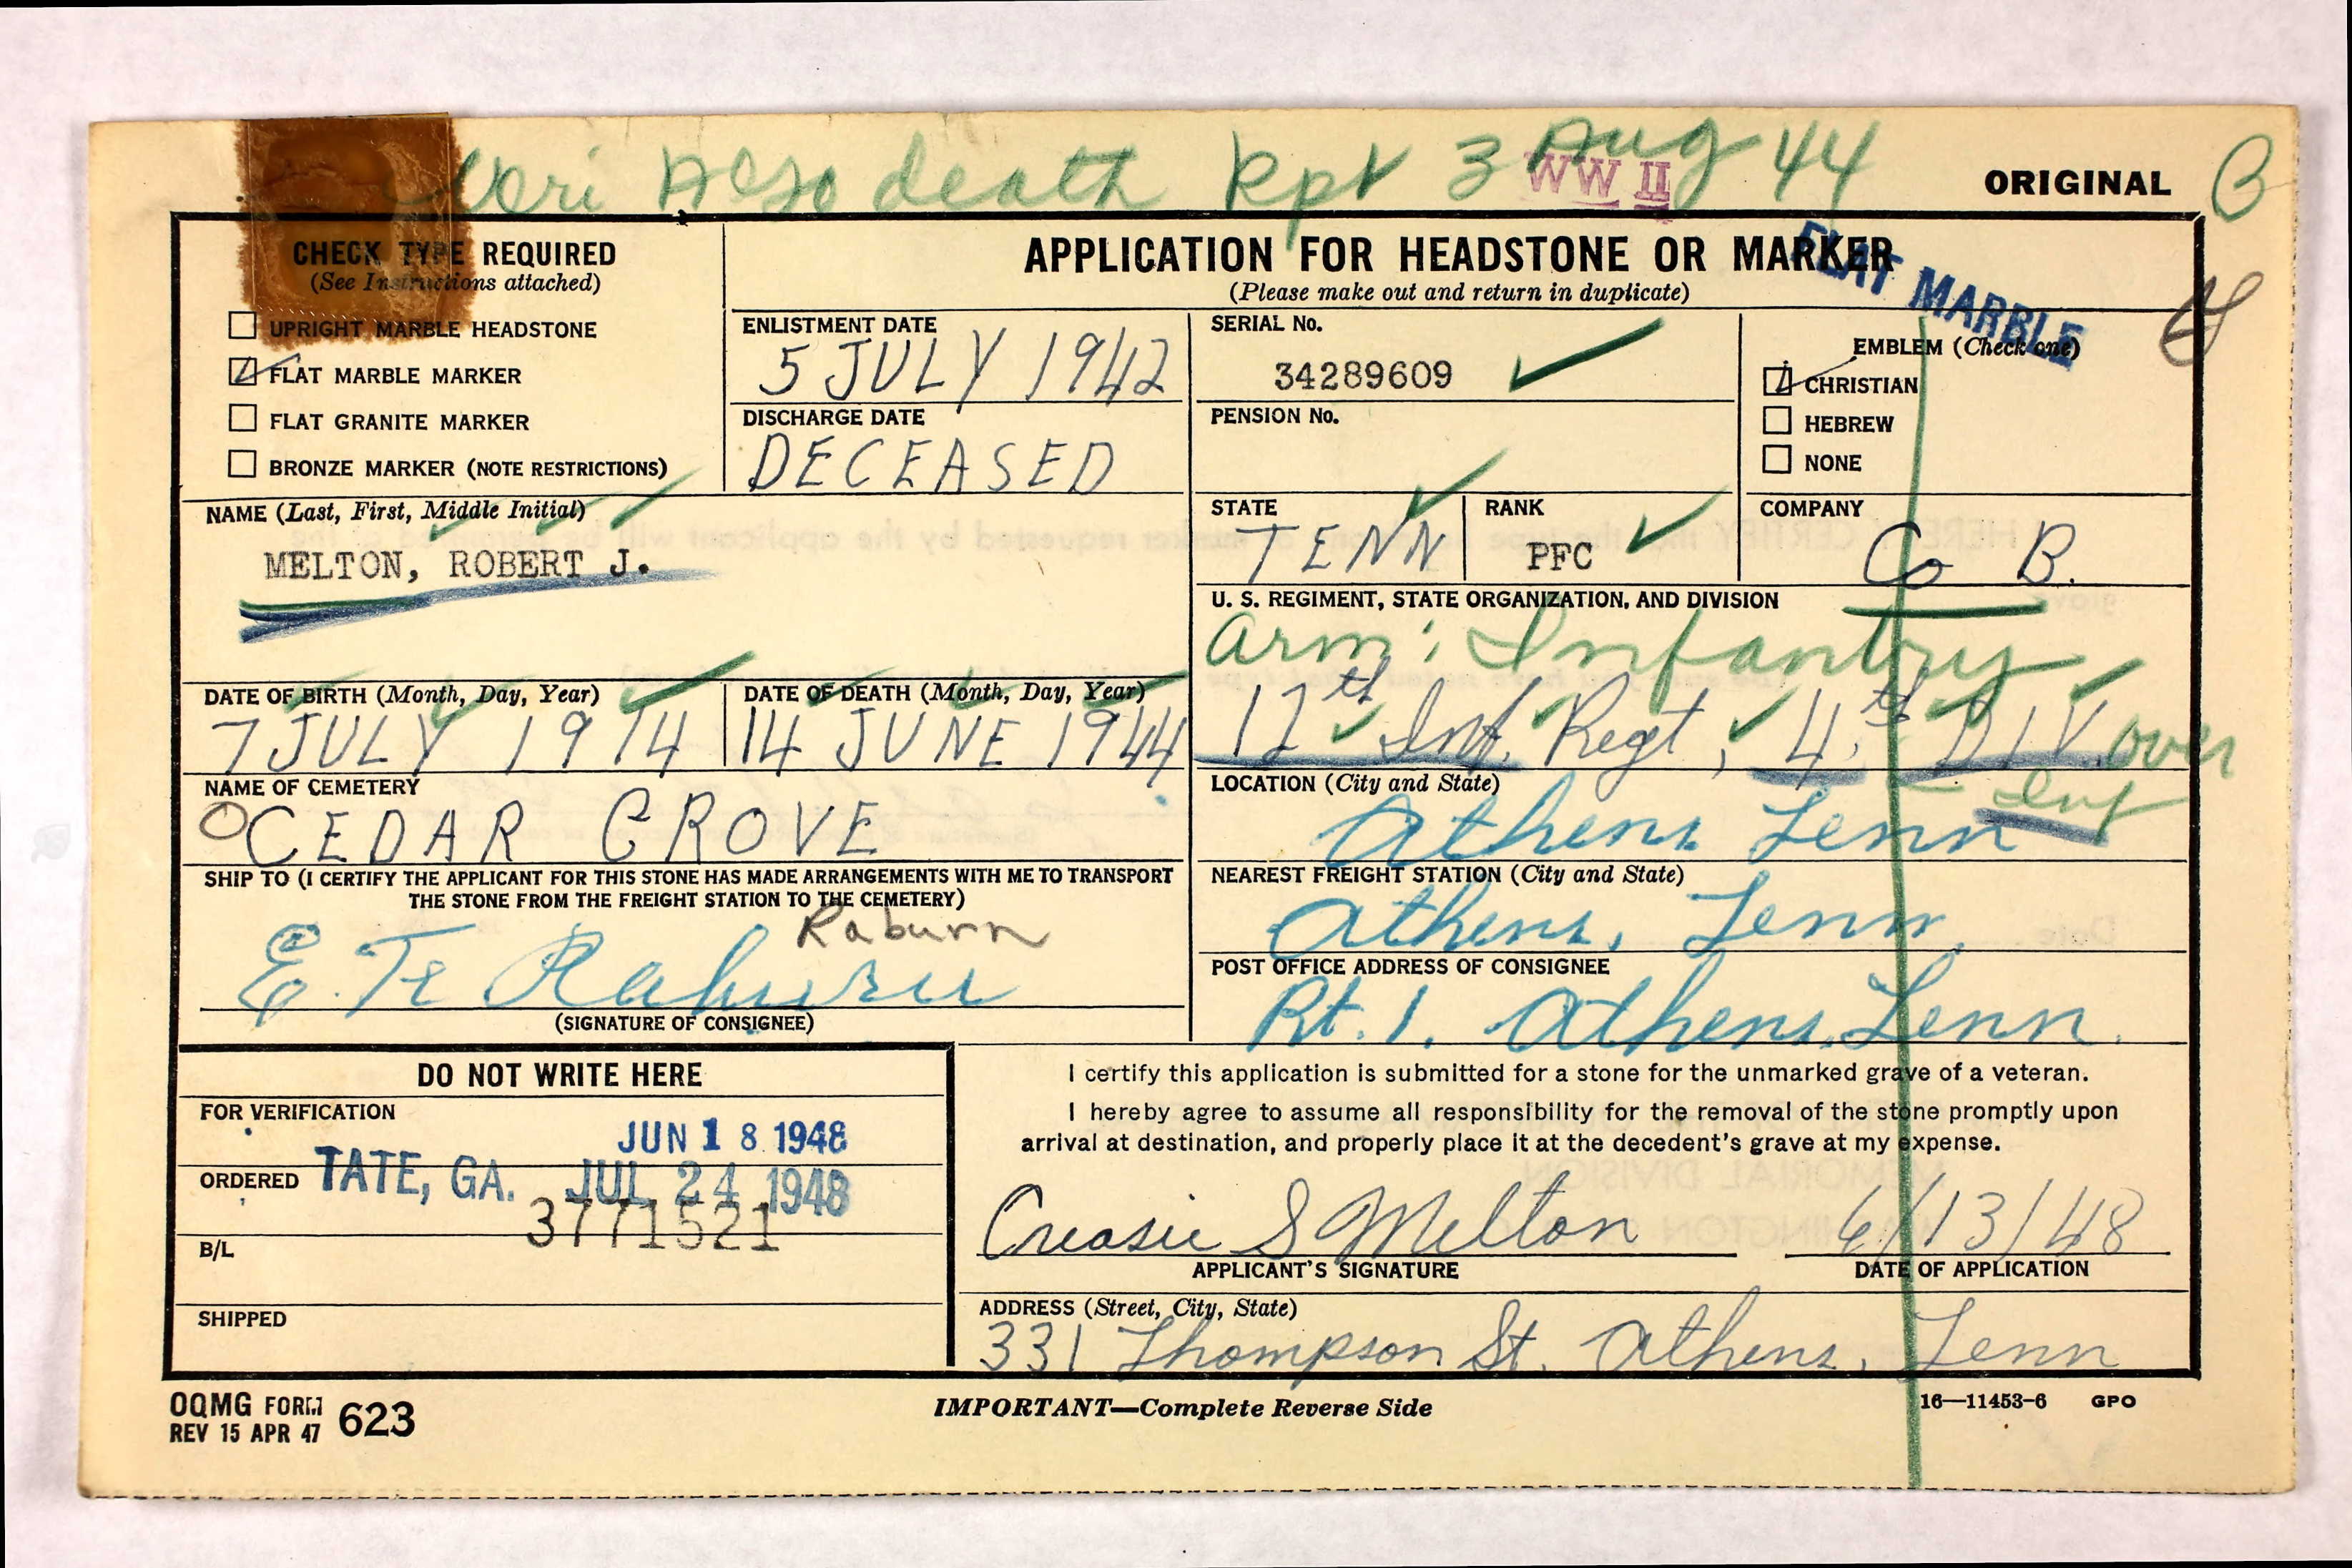 Veri Also death Rpt 3 Aug 44
WW II
ORIGINAL B
CHECK TYPE REQUIRED
(See Instructions attached)
UPRIGHT MARBLE HEADSTONE
FLAT MARBLE MARKER
FLAT GRANITE MARKER
BRONZE MARKER (NOTE RESTRICTIONS)
APPLICATION FOR HEADSTONE OR MARKER
(Please make out and return in duplicate)
FLAT MARBLE
ENLISTMENT DATE
5 JULY 1942
DISCHARGE DATE
DECEASED
SERIAL No.
34289609
PENSION No.
EMBLEM (Check one)
CHRISTIAN
HEBREW
NONE
NAME (Last, First, Middle Initial)
MELTON, ROBERT J.
STATE
TENN
RANK
PFC
COMPANY
Co B.
U. S. REGIMENT, STATE ORGANIZATION, AND DIVISION
Arm: Infantry
12th Inf. Regt, 4th DIV. over
Inf
DATE OF BIRTH (Month, Day, Year)
7 JULY 1914
DATE OF DEATH (Month, Day, Year)
14 JUNE 1944
NAME OF CEMETERY
CEDAR GROVE
LOCATION (City and State)
Athens Tenn
SHIP TO (I CERTIFY THE APPLICANT FOR THIS STONE HAS MADE ARRANGEMENTS WITH ME TO TRANSPORT
THE STONE FROM THE FREIGHT STATION TO THE CEMETERY)
Raburn
E. T. Raburn
(SIGNATURE OF CONSIGNEE)
NEAREST FREIGHT STATION (City and State)
Athens, Tenn.
POST OFFICE ADDRESS OF CONSIGNEE
Rt. 1. Athens, Tenn.
DO NOT WRITE HERE
FOR VERIFICATION
JUN 18 1948
ORDERED TATE, GA. JUL 24 1948
3771521
B/L
SHIPPED
I certify this application is submitted for a stone for the unmarked grave of a veteran.
I hereby agree to assume all responsibility for the removal of the stone promptly upon
arrival at destination, and properly place it at the decedent's grave at my expense.
Creasie S Melton 6/13/48
APPLICANT'S SIGNATURE DATE OF APPLICATION
ADDRESS (Street, City, State)
331 Thompson St. Athens, Tenn
OQMG FORM 623
REV 15 APR 47
IMPORTANT—Complete Reverse Side
16—11453-6 GPO